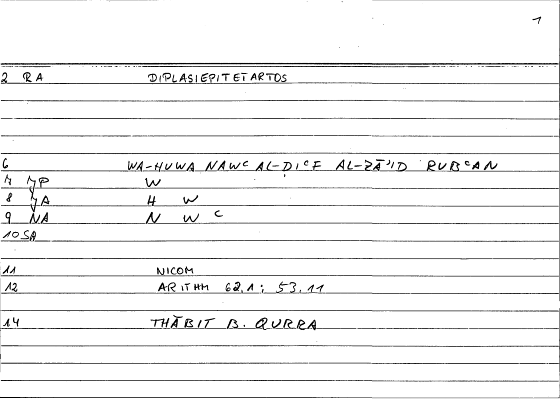 1
2 RA DIPLASIEPITETARTOS
6 WA-HUWA NAWᶜ AL-ḌIᶜF AL-ZĀʾID RUBᶜAN
7 JP W
8 JA H W
9 NA N W ᶜ
10 SA
11 NICOM
12 ARITHM 62.1; 53.11
14 THĀBIT B. QURRA